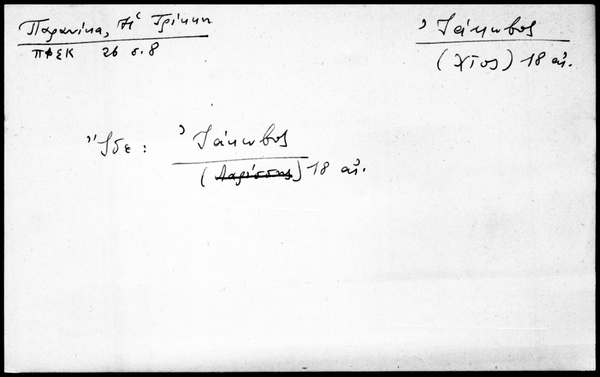 Παρανίκα, Ἡ Τρίκκη
ΠΦΣΚ 26 σ. 8
Ἰάκωβος
(Χῖος) 18 αἰ.
Ἴδε: Ἰάκωβος
(Λαρίσσης) 18 αἰ.